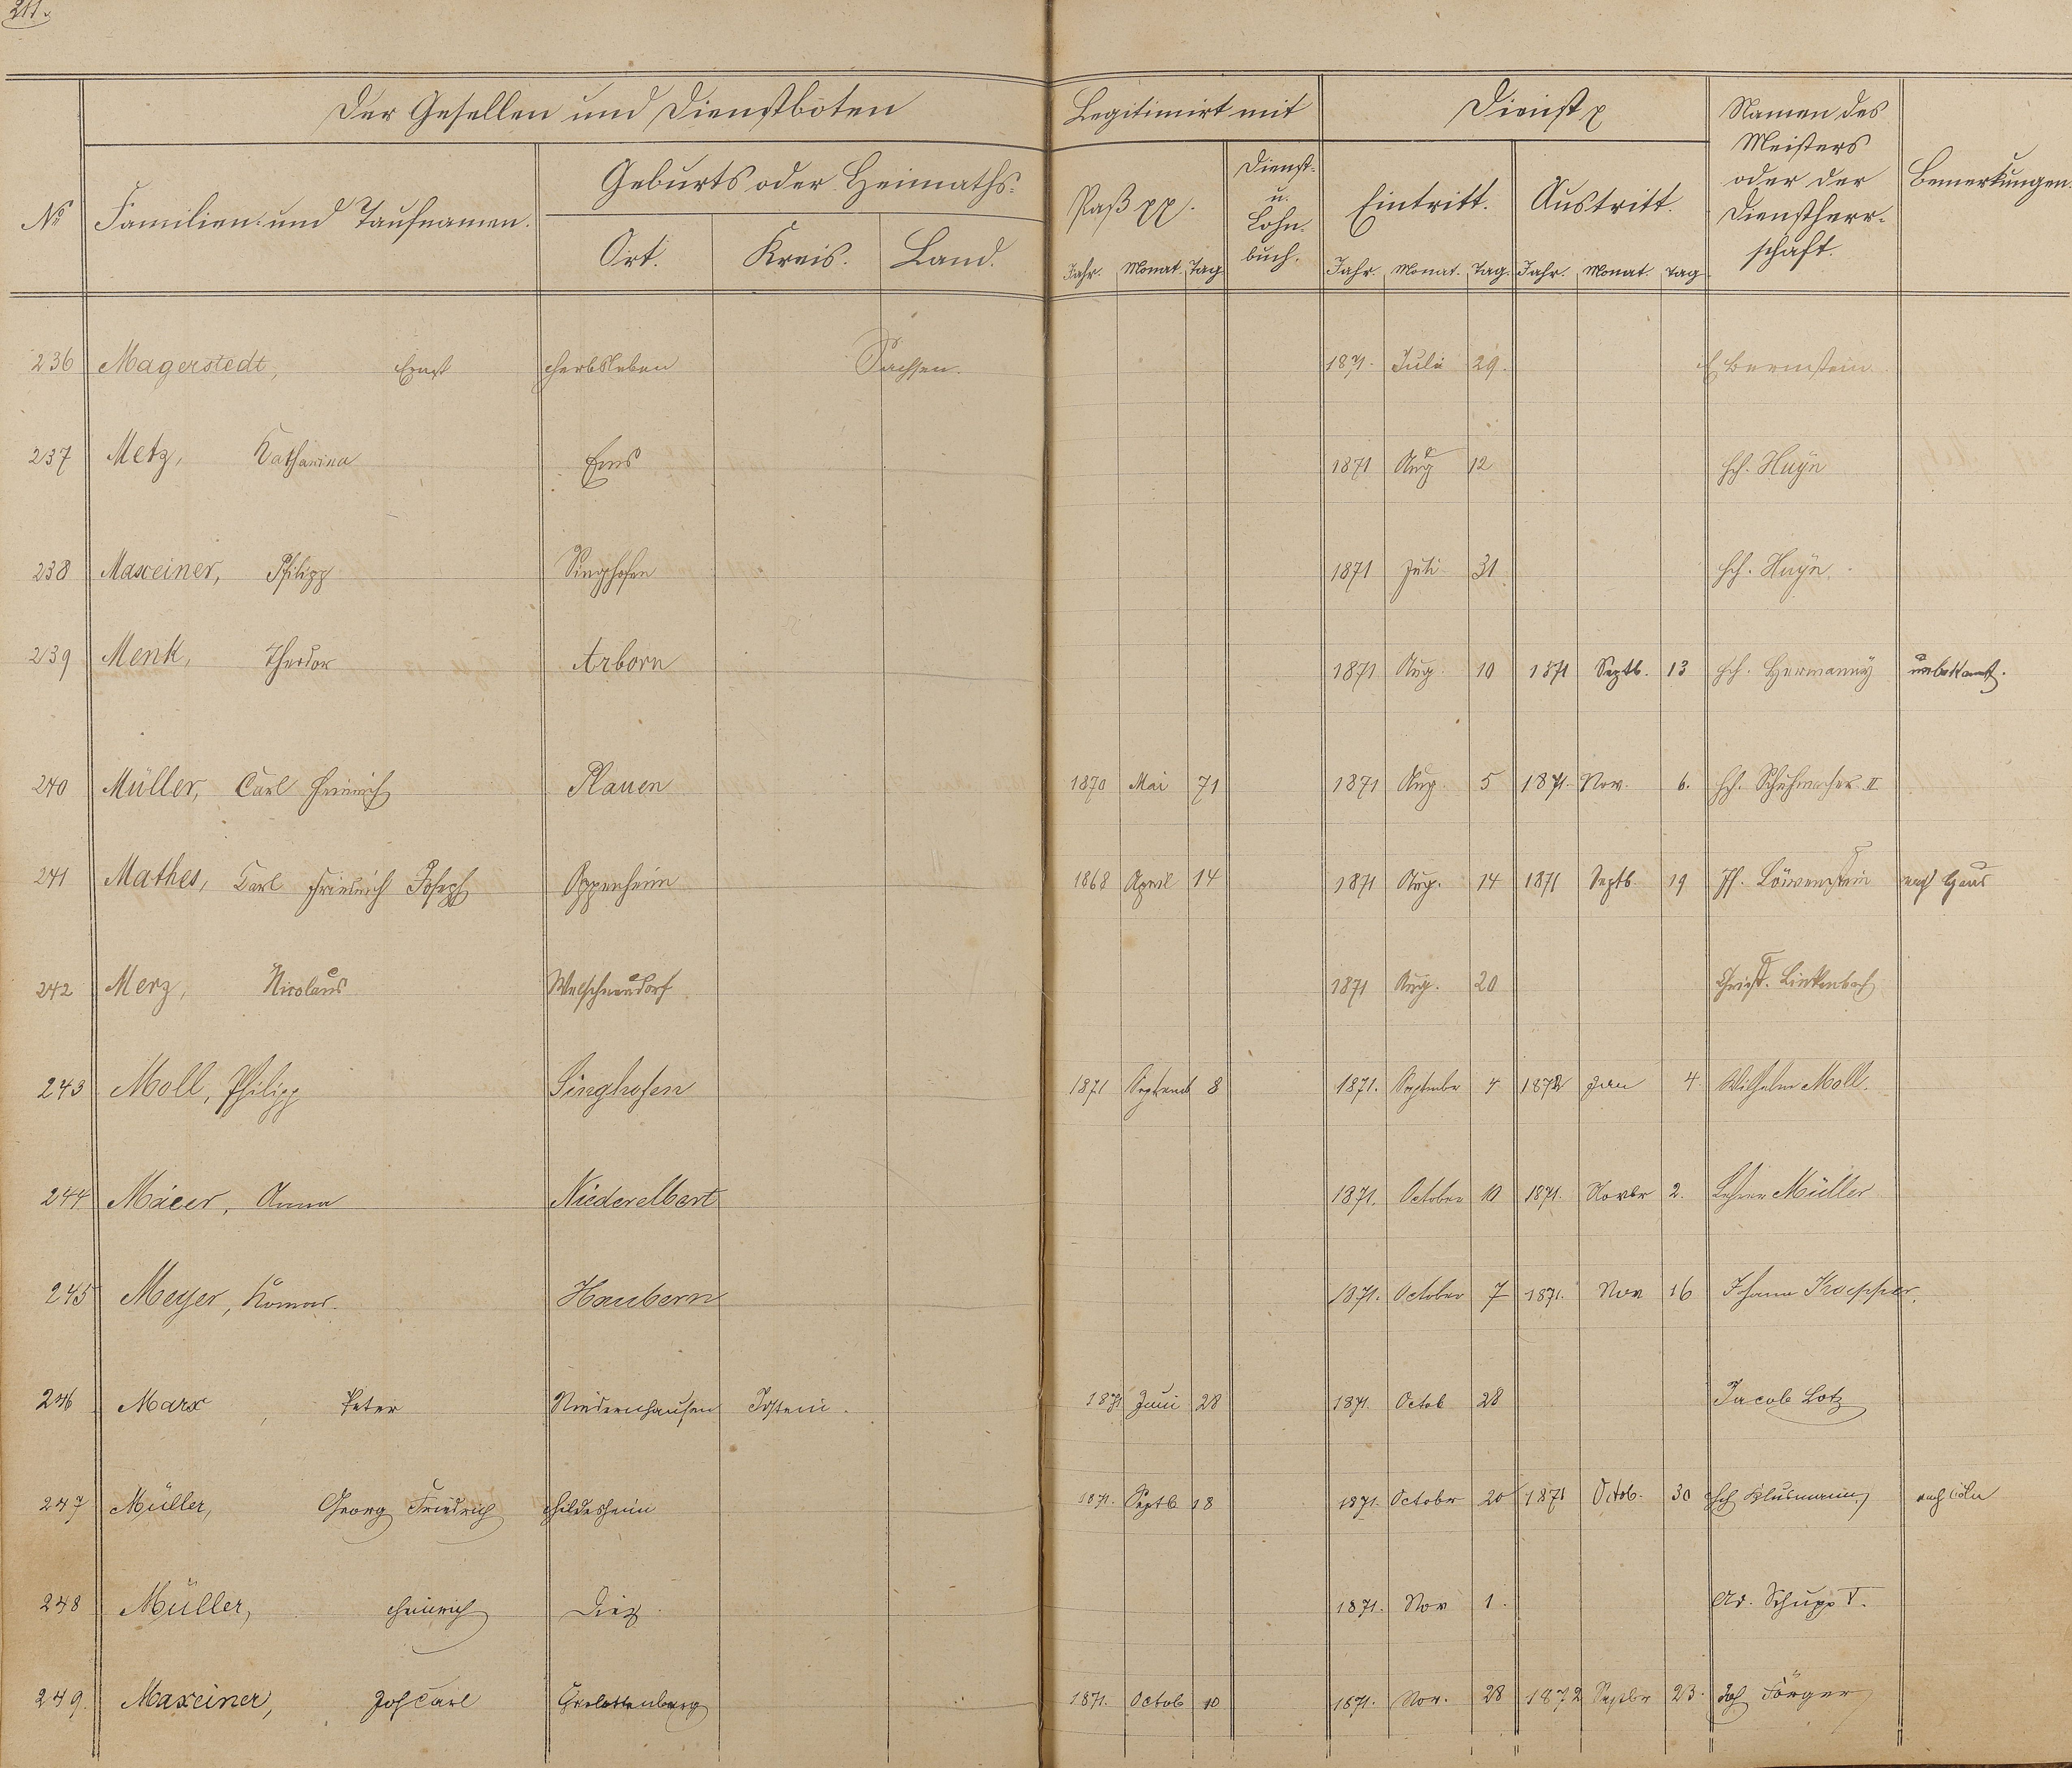 211.
Der Gesellen und Dienstboten
Legitimirt mit
Dienst
Namen des
Meisters
oder der
Dienstherr-
schaft.
Bemerkungen.
No
Familien- und Taufnamen.
Geburts oder Heimaths-
Ort. Kreis. Land.
Paß pp.
Jahr. Monat. Tag
Dienst-
u.
Lohn-
buch.
Eintritt.
Jahr. Monat. Tag.
Austritt.
Jahr. Monat. Tag
236 Magerstedt, Ernst Herbsleben Sachsen. 1871. Juli 29. Bernstein
237 Metz, Katharina Ems 1871 Aug 12 Hch. Huyn
238 Maxeiner, Philipp Singhofen 1871 Juli 31 Hch. Huyn.
239 Menk, Theodor Arborn 1871 Aug. 10 1871 Septb. 13 Hch. Hermanny unbekannt.
240 Müller, Carl Heinrich Plauen 1870 Mai 71 1871 Aug. 5 1871. Nov. 6. Hch. Schuhmacher II
241 Mathes, Carl Friedrich Joseph Oppenheim 1868 April 14 1871 Aug. 14 1871 Septb. 19 Löwenstein nach Haus
242 Merz, Nicolaus Welschneudorf 1871 Aug. 20 Christ. Linkenbach
243 Moll, Philipp Singhofen 1871 Septemb 8 1871. September 4 1872 Jan 4 Wilhelm Moll.
244 Anna Niederelbert 1871. October 10 1871. Novbr 2. Lehrer Müller
245 Meyer, Haubern 1871. October 7 1871. Nov 16 Johann
246 Marx, Peter Niedernhausen Idstein. 1871 Juni 28 1871 Octob 28 Jacob Lotz
247 Müller, Georg Friedrich Hildesheim 1871. Septb 18 1871. October 20 1871 Octob. 30 Hch Klusmann nach Cöln
248 Müller, Heinrich Diez. 1871. Nov 1. Ad. Schupp V.
249. Maxeiner, Joh Carl 1871. Octob 10 1871. Nov. 28 1872 Septbr 23. Joh Förger